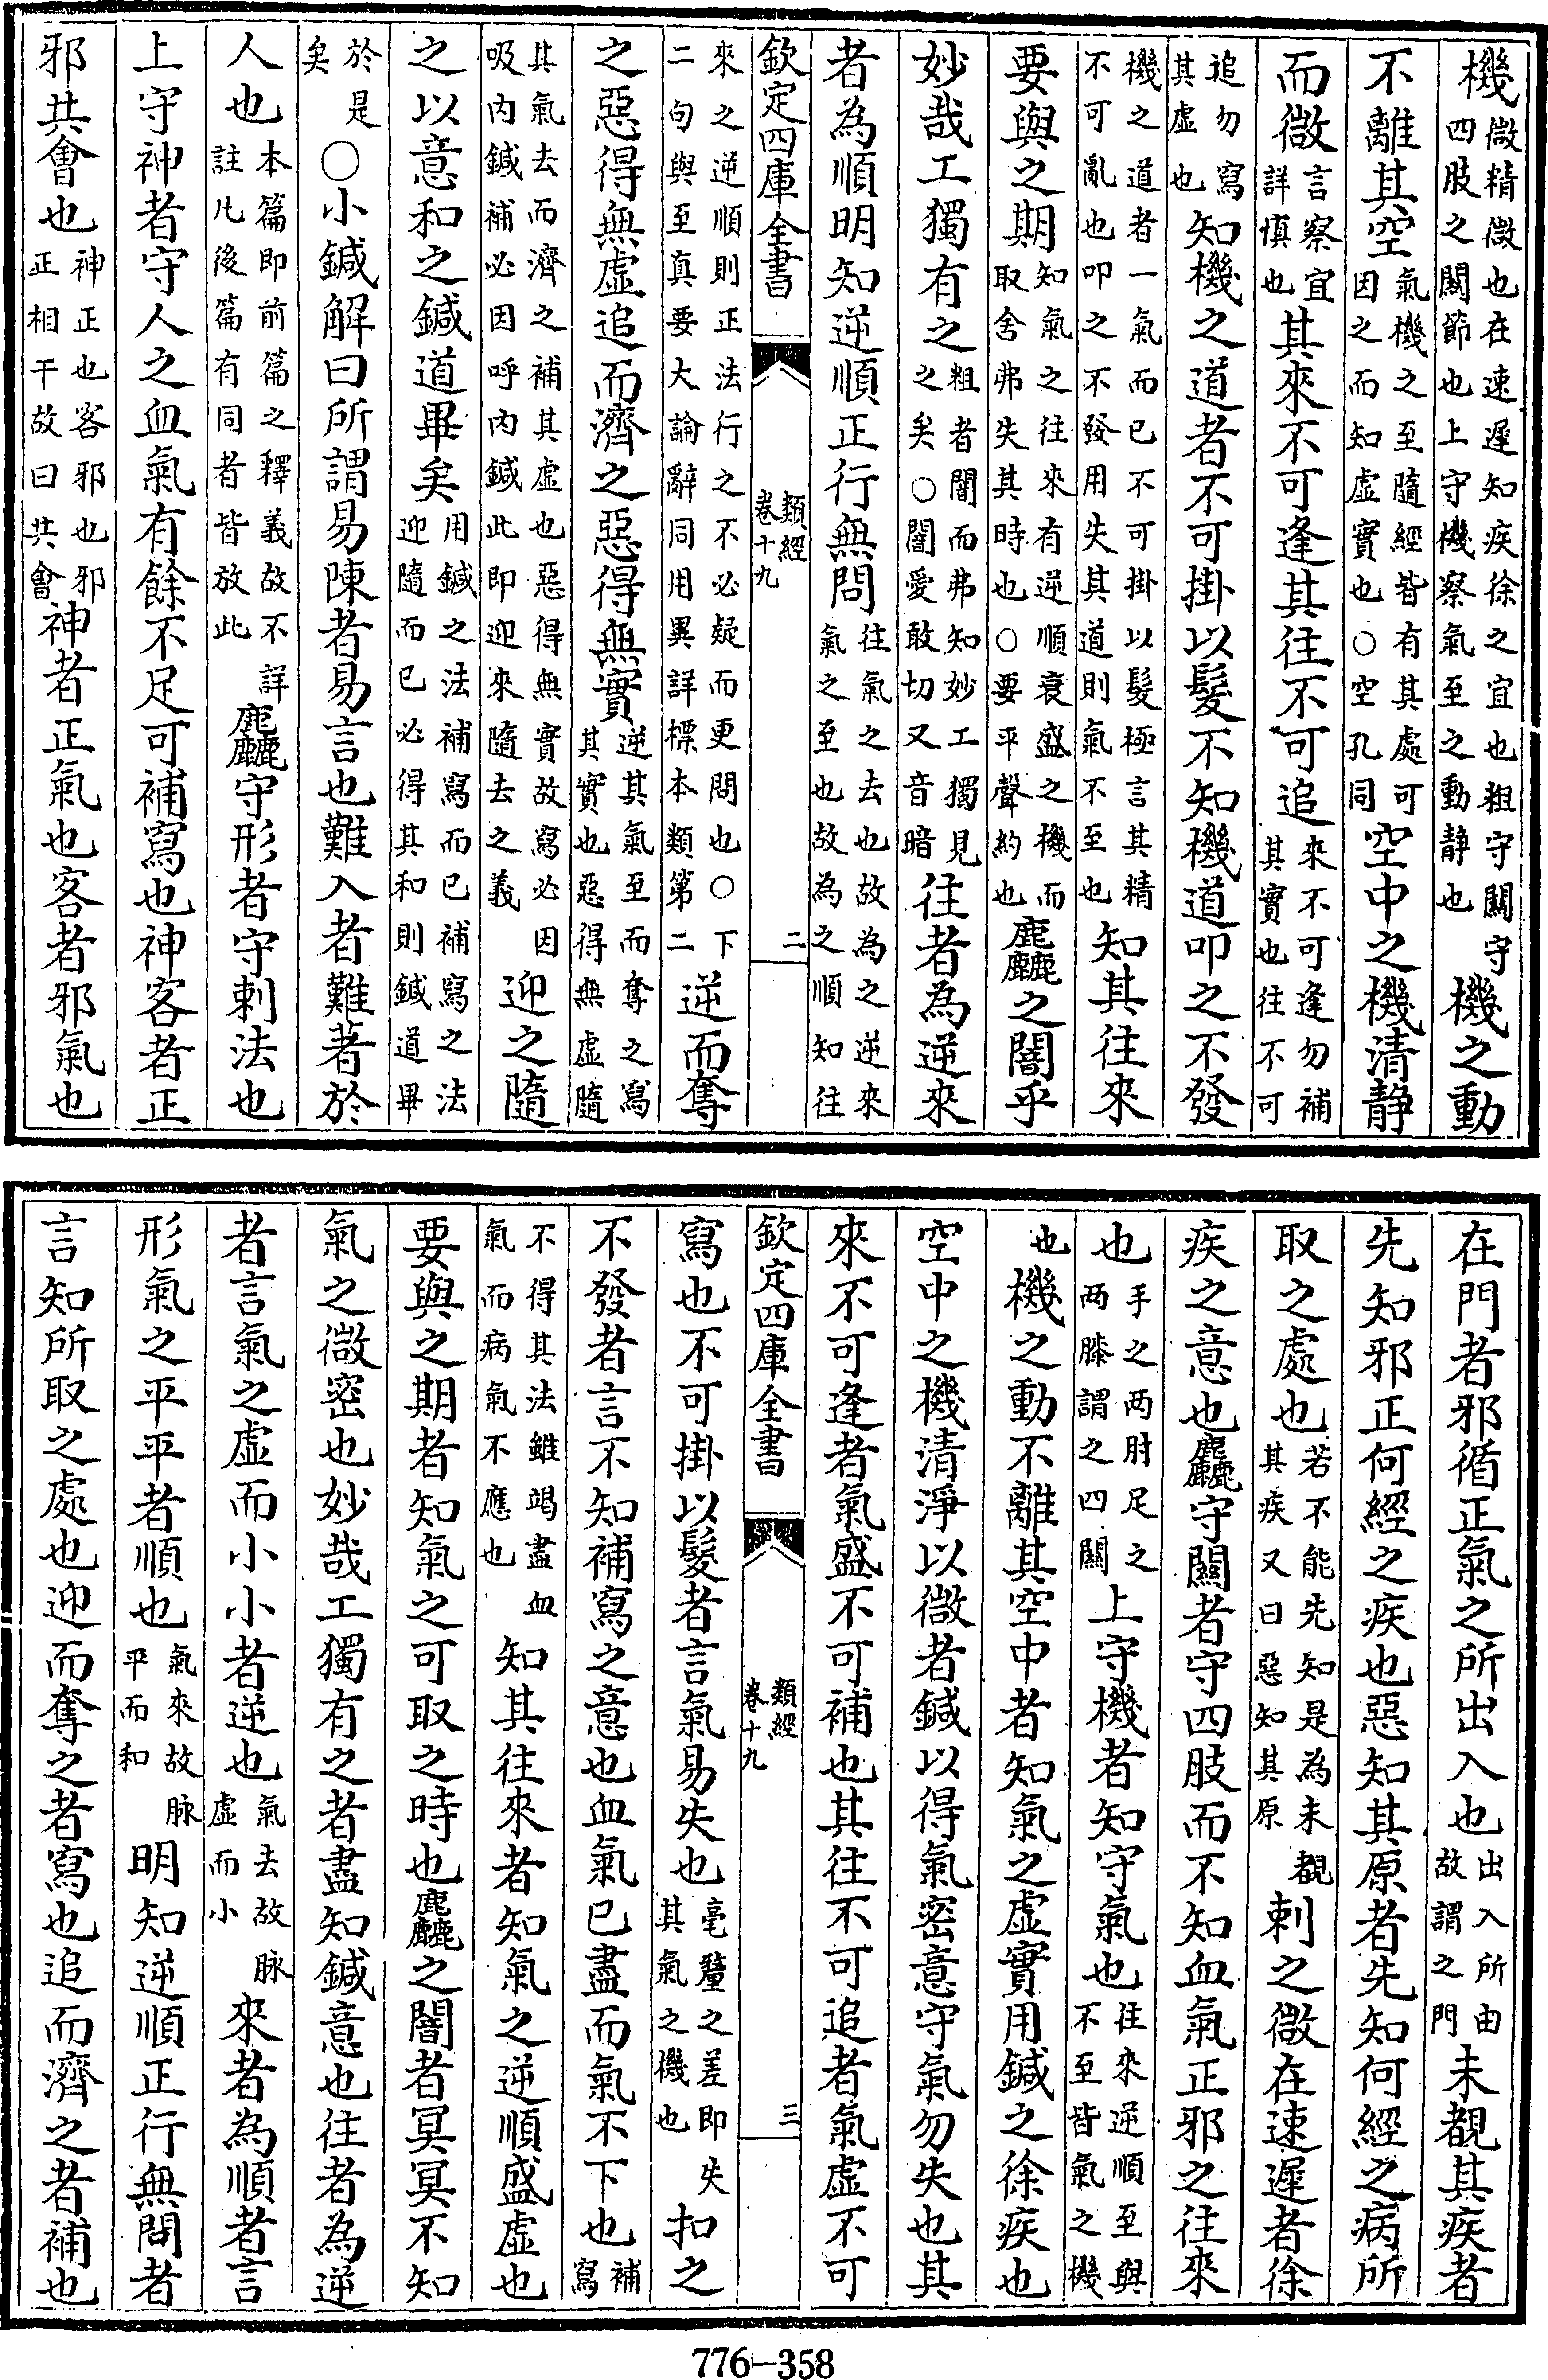 機微精微也在速遲知疾徐之宜也粗守關守四肢之關節也上守機察氣至之動靜也機之動
不離其空氣機之至隨經皆有其處可因之而知虛實也○空孔同空中之機清静
而微言察宜詳慎也其來不可逢其往不可追來不可逢勿補其實也往不可
追勿寫其虛也知機之道者不可掛以髮不知機道叩之不發
機之道者一氣而已不可掛以髮極言其精不可亂也叩之不發用失其道則氣不至也知其往來
要與之期知氣之往來有逆順衰盛之機而取舍弗失其時也○要平聲約也麤之闇乎
妙哉工獨有之粗者闇而弗知妙工獨見之矣○闇愛敢切又音暗往者為逆來
者為順明知逆順正行無問往氣之去也故為之逆來氣之至也故為之順知往
欽定四庫全書 類經卷十九 二
來之逆順則正法行之不必疑而更問也○下二句與至真要大論辭同用異詳標本類第二逆而奪
之惡得無虛追而濟之惡得無實逆其氣至而奪之寫其實也惡得無虛隨
其氣去而濟之補其虛也惡得無實故寫必因吸內鍼補必因呼內鍼此即迎來隨去之義迎之隨
之以意和之鍼道畢矣用鍼之法補寫而已補寫之法迎隨而已必得其和則鍼道畢
於是矣○小鍼解曰所謂易陳者易言也難入者難著於
人也本篇即前篇之釋義故不詳註凡後篇有同者皆放此麤守形者守刺法也
上守神者守人之血氣有餘不足可補寫也神客者正
邪共會也神正也客邪也邪正相干故曰共會神者正氣也客者邪氣也
在門者邪循正氣之所出入也出入所由故謂之門未覩其疾者
先知邪正何經之疾也惡知其原者先知何經之病所
取之處也若不能先知是為未覩其疾又曰惡知其原刺之微在速遲者徐
疾之意也麤守關者守四肢而不知血氣正邪之往來
也手之两肘足之两膝謂之四關上守機者知守氣也往來逆順至與不至皆氣之機
也機之動不離其空中者知氣之虛實用鍼之徐疾也
空中之機清淨以微者鍼以得氣密意守氣勿失也其
來不可逢者氣盛不可補也其往不可追者氣虛不可
欽定四庫全書 類經卷十九 三
寫也不可掛以髮者言氣易失也毫釐之差即失其氣之機也扣之
不發者言不知補寫之意也血氣已盡而氣不下也補寫
不得其法雖竭盡血氣而病氣不應也知其往來者知氣之逆順盛虛也
要與之期者知氣之可取之時也麤之闇者冥冥不知
氣之微密也妙哉工獨有之者盡知鍼意也往者為逆
者言氣之虛而小小者逆也氣去故脉虛而小來者為順者言
形氣之平平者順也氣來故脉平而和明知逆順正行無問者
言知所取之處也迎而奪之者寫也追而濟之者補也
776-358